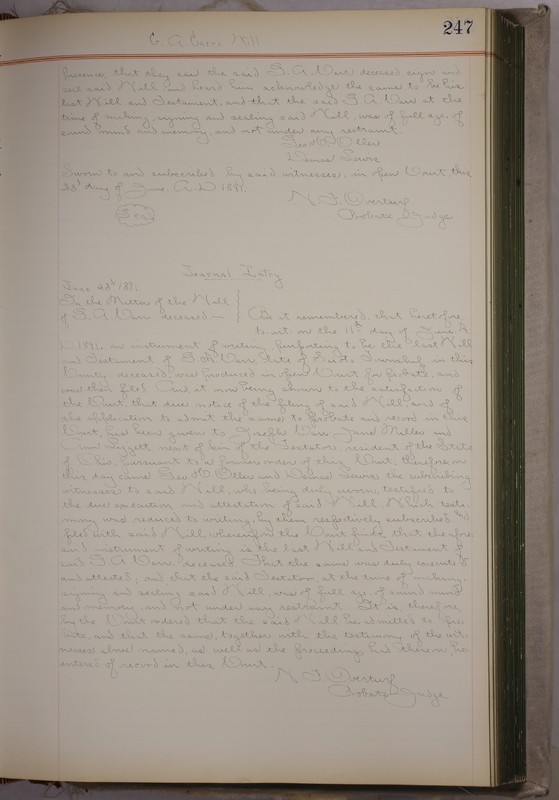 247
G. A. Will
presence, that they saw the said G. A. deceased sign and
seal said Will, and heard him acknowledge the same to be his
last Will and Testament, and that the said G. A. at the
time of making, signing and sealing said Will, was of full age, of
sound mind and memory, and not under any restraint.
Geo
Sworn to and subscribed by said witnesses, in open Court, this
23d day of June, A.D. 1891.
N. F. Overturf
Probate Judge
Seal
Journal Entry
June 23d 1891.
In the Matter of the Will
of G. A. deceased
Be it remembered, that heretofore
to wit: on the 11th day of June A.
D. 1891, an instrument of writing, purporting to be the last Will
and Testament of late of Trumbull in this
County deceased, was produced in open Court for probate, and
was then filed. And it now being shown to the satisfaction of
the Court, that due notice of the filing of said Will, and of
the application to admit the same to Probate and record in this
Court, has been given to Joseph Jane Miller and
next of kin of the Testator, resident of the State
of Ohio, pursuant to a former order of this Court, therefore on
this day came Geo and the subscribing
witnesses to said Will, who being duly sworn, testified to
the due execution and attestation of said Will. Which testi-
mony was reduced to writing, by them respectively subscribed and
filed with said Will, whereupon the Court finds, that the afore-
said instrument of writing is the last Will and Testament of
said G. A. deceased. That the same was duly executed
and attested; and that the said Testator, at the time of making,
signing and sealing said Will, was of full age, of sound mind
and memory, and not under any restraint. It is, therefore,
by the Court ordered that the said Will be admitted to Pro-
bate, and that the same, together with the testimony of the wit-
nesses above named, as well as the proceedings had therein, be
entered of record in this Court.
N. F. Overturf
Probate Judge